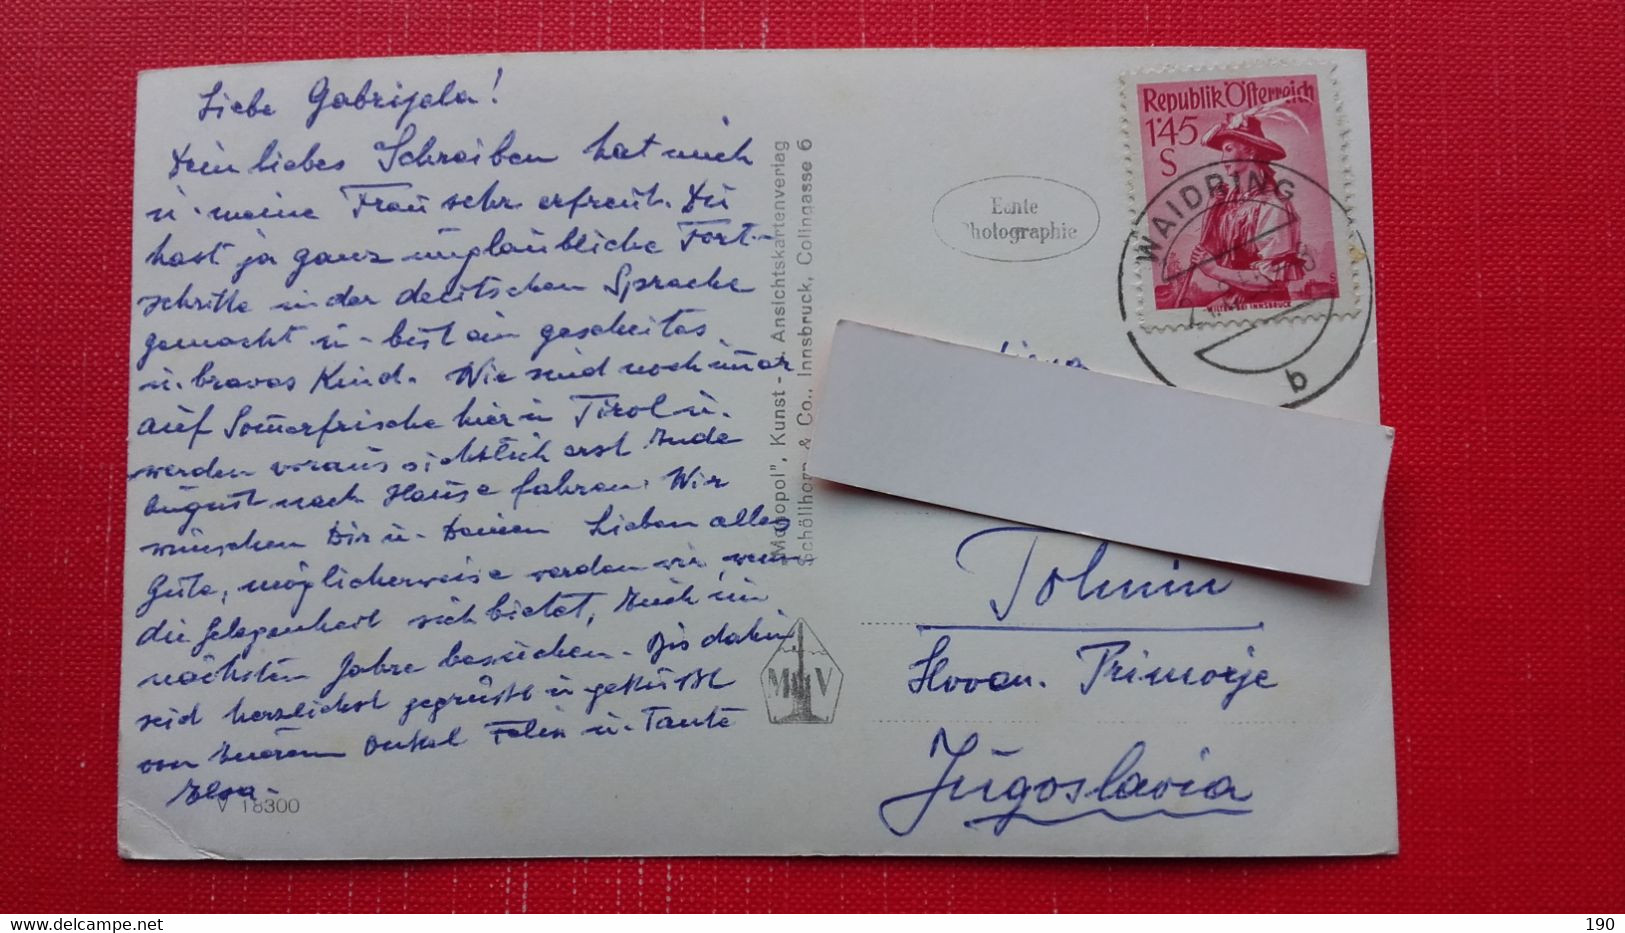 Liebe Gabrijela!
Dein liebes Schreiben hat mich
u. meine Frau sehr erfreut. Du
hast ja ganz unglaubliche Fort-
schritte in der deutschen Sprache
gemacht u. bist ein gescheites
u. braves Kind. Wir sind noch immer
auf Sommerfrische hier in Tirol u.
werden voraussichtlich erst Ende
August nach Hause fahren. Wir
wünschen Dir u. Deinen Lieben alles
Gute, möglicherweise werden wir, wenn
die Gelegenheit sich bietet, Euch im
nächsten Jahre besuchen. Bis dahin
seid herzlichst gegrüßt u. geküßt
von Eurem Onkel Felix u. Tante
Elsa.
V 18300
"Monopol", Kunst- u. Ansichtskartenverlag
Schöllhorn & Co., Innsbruck, Colingasse 6
M V
Echte
Photographie
Republik Österreich
1·45
S
WILTEN BEI INNSBRUCK
WAIDRING
b
Tolmin
Slovan. Primorje
Jugoslavia
190